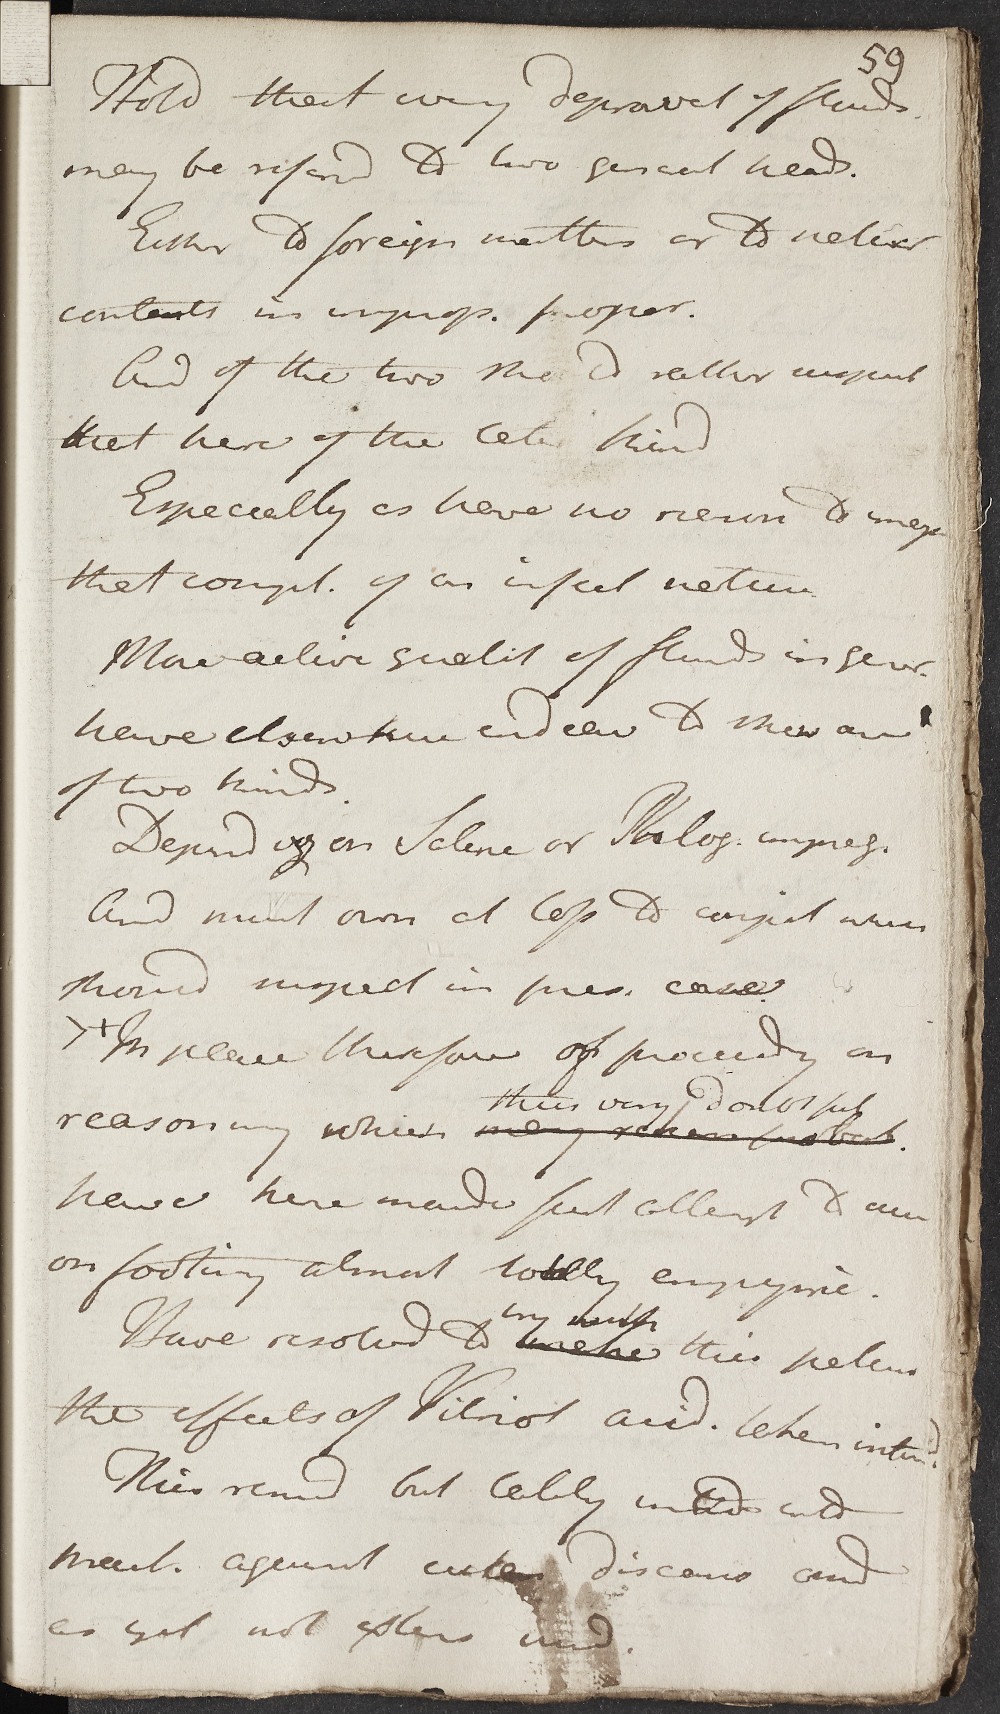 59
Hold that every depravat of fluids.
may be referd to two general heads.
Either to foreign matters or to natur
contents in improp. propor.
And of the two shd rather suspect
that here of the latr kind
Especially as have no reason to
that compl. of an infect nature
More active qualit of fluids in gener.
have elsewhere endeav to shew are
of two kinds.
Depending on Saline or Phlog. impreg.
And must own at loss to conject which
should suspect in pres. case.
In place therefore of proceeding on
reasoning which many reason probab.
thus very doubtful
have here made first attempt to
on footing almost totally empyric.
Have resolved to make this patient
try with
the effects of Vitriol acid. taken intern.
This remd but lately introd into
pract. against cutan diseases and
as yet not extens usd.